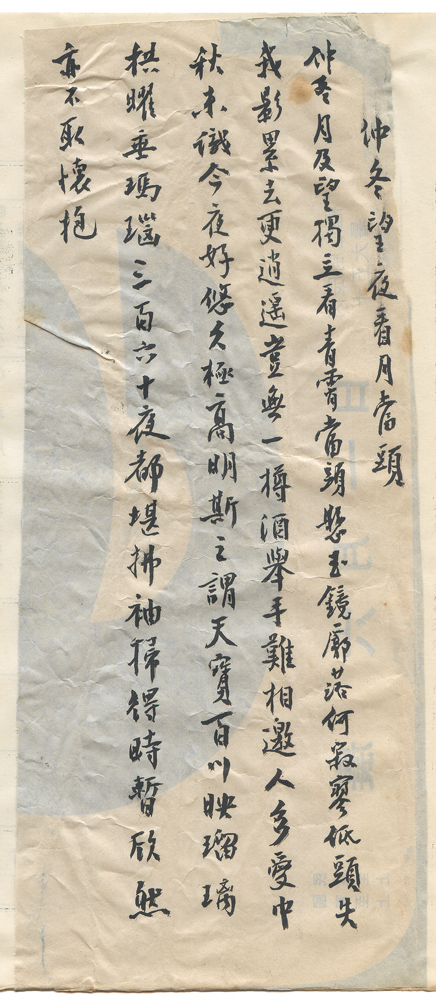 仲冬望夜看月當頭
仲冬月及望獨立看青霄當頭懸玉鏡廓落何寂寥低頭失
我影累去更逍遥豈無一樽酒舉手難相邀人多愛中
秋未識今夜好悠久極高明斯之謂天寶百川映瑠璃
拱曜垂瑪瑙三百六十夜都堪拂袖掃得時暫欣然
亦不取懷抱